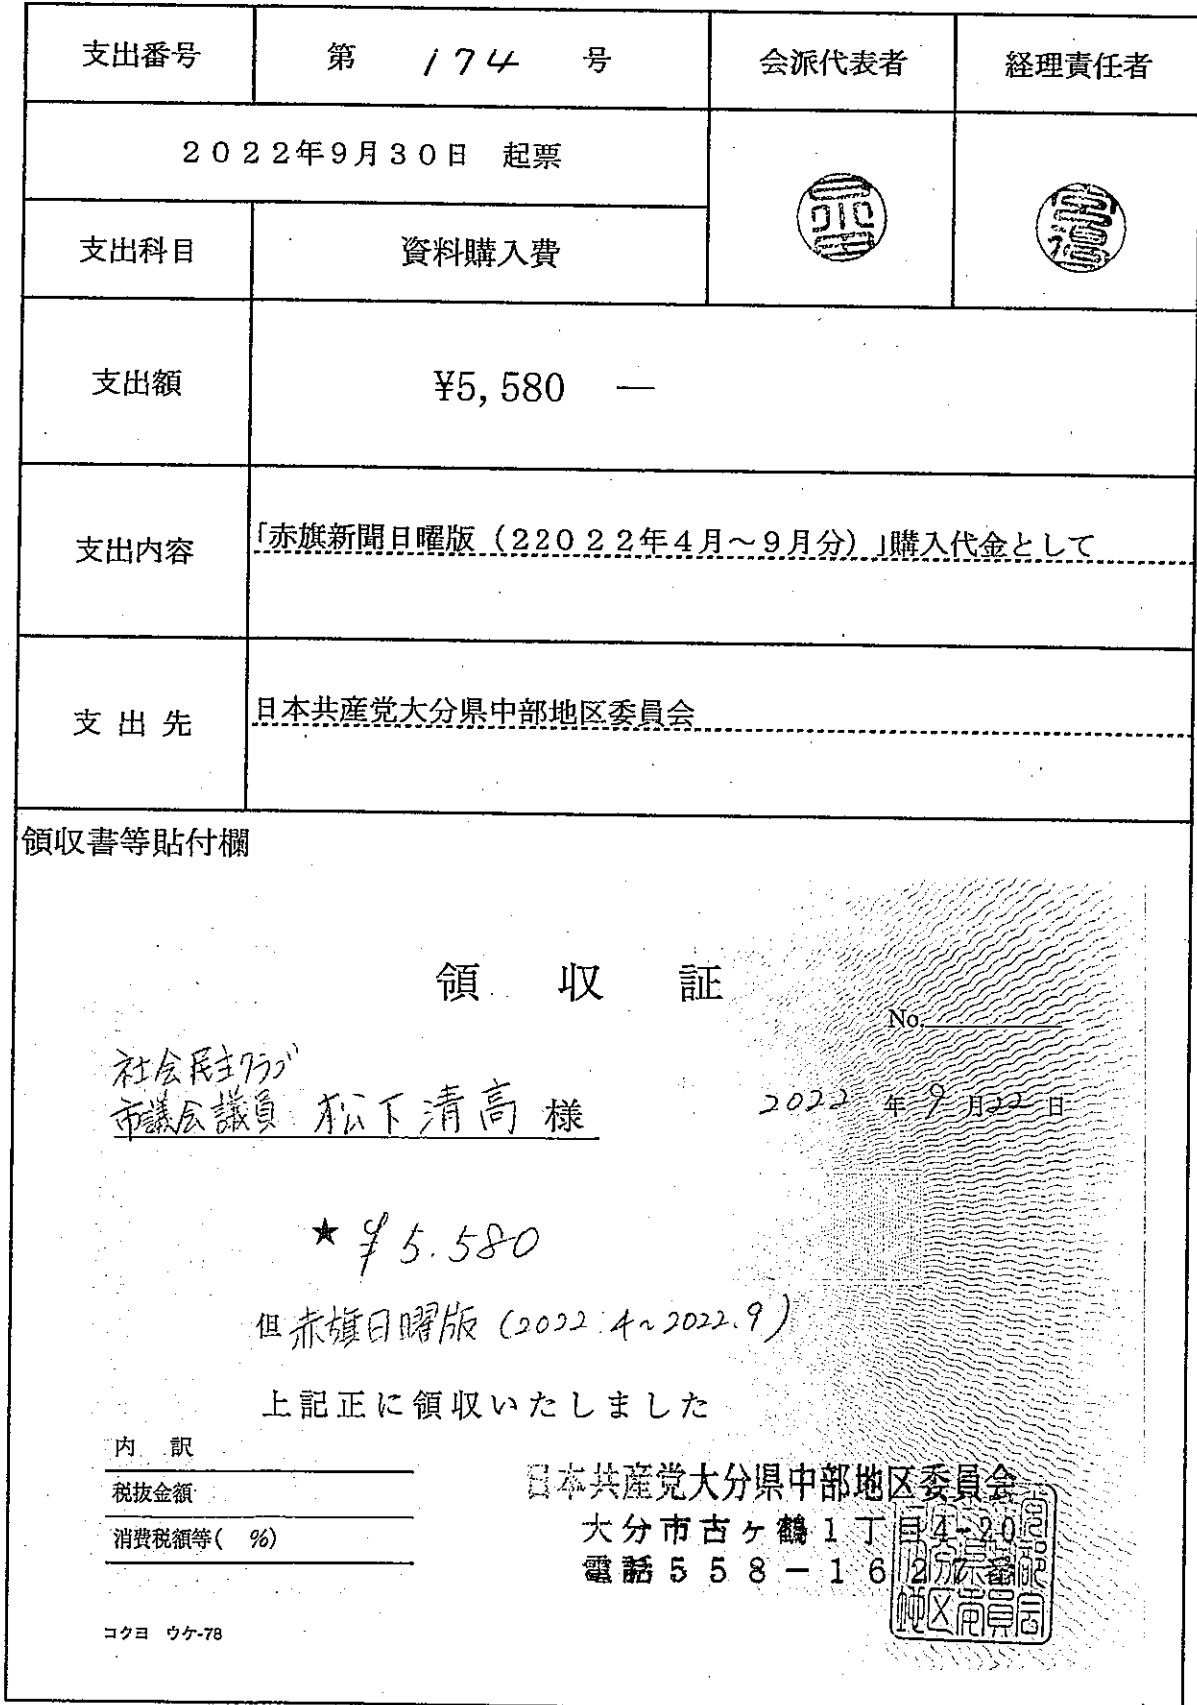 支出番号 第 174 号 会派代表者 経理責任者
2022年9月30日 起票
支出科目 資料購入費
支出額 ¥5,580 ―
支出内容 「赤旗新聞日曜版（22022年4月～9月分）」購入代金として
支出先 日本共産党大分県中部地区委員会
領収書等貼付欄
領収証
No.
社会民主クラブ
市議会議員 松下清高 様 2022年9月22日
★ ¥5.580
但 赤旗日曜版 (2022.4~2022.9)
上記正に領収いたしました
内訳
税抜金額
消費税額等( %)
日本共産党大分県中部地区委員会
大分市古ヶ鶴1丁目4-20
電話558-1627番
コクヨ ウケ-78